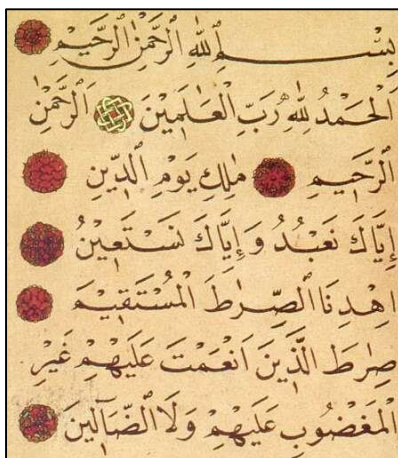 بِسْمِ اللهِ الرَّحْمٰنِ الرَّحِيْمِ
اَلْحَمْدُ لِلّٰهِ رَبِّ الْعَالَمِيْنَ اَلرَّحْمٰنِ
الرَّحِيْمِ مٰلِكِ يَوْمِ الدِّيْنِ
اِيَّاكَ نَعْبُدُ وَاِيَّاكَ نَسْتَعِيْنُ
اِهْدِنَا الصِّرَاطَ الْمُسْتَقِيْمَ
صِرَاطَ الَّذِيْنَ اَنْعَمْتَ عَلَيْهِمْ غَيْرِ
الْمَغْضُوْبِ عَلَيْهِمْ وَلَا الضَّآلِّيْنَ